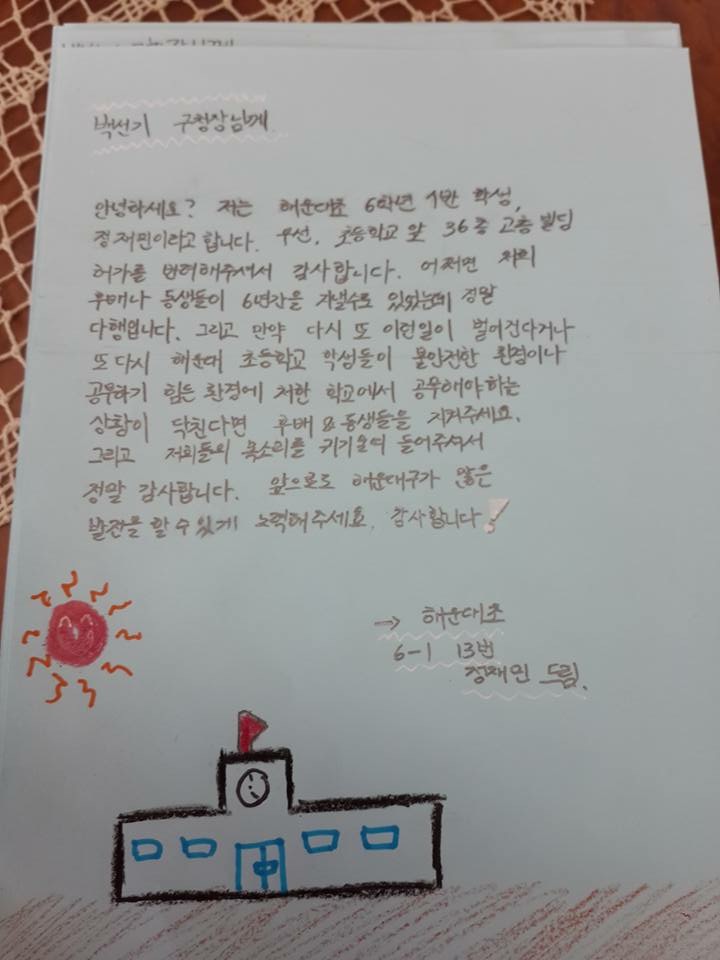 백선기 구청장님께
안녕하세요? 저는 해운대초 6학년 1반 학생,
정재민이라고 합니다. 우선, 초등학교 앞 36층 고층 빌딩
허가를 반려해주셔서 감사합니다. 어쩌면 저희
후배나 동생들이 6년간을 지낼수도 있었는데 정말
다행입니다. 그리고 만약 다시 또 이런일이 벌어진다거나
또 다시 해운대 초등학교 학생들이 불안전한 환경이나
공부하기 힘든 환경에 처한 학교에서 공부해야하는
상황이 닥친다면 후배&동생들을 지켜주세요.
그리고 저희들의 목소리를 귀기울여 들어주셔서
정말 감사합니다. 앞으로도 해운대구가 많은
발전을 할 수 있게 노력해주세요. 감사합니다!
→ 해운대초
6-1 13번
정재민 드림.